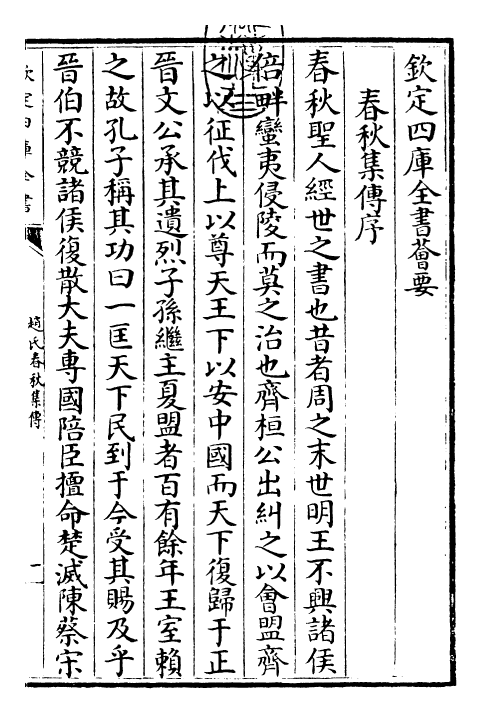 欽定四庫全書薈要
春秋集傳序
春秋聖人經世之書也昔者周之末世明王不興諸侯
倍畔蠻夷侵陵而莫之治也齊桓公出糾之以會盟齊
之以征伐上以尊天王下以安中國而天下復歸于正
晉文公承其遺烈子孫繼主夏盟者百有餘年王室賴
之故孔子稱其功曰一匡天下民到于今受其賜及乎
晉伯不競諸侯復散大夫專國陪臣擅命楚滅陳蔡宋
欽定四庫全書
趙氏春秋集傳
一